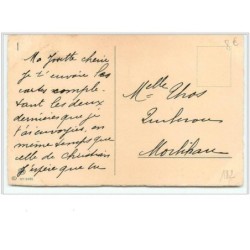 1
8€
Ma Yvette chérie
je t'envoie les
cartes complé-
tant les deux
dernières que je
t'ai envoyées, en
même temps que
celle de Christian
J'espère que tu
Melle Thos
Quiberon
Morbihan